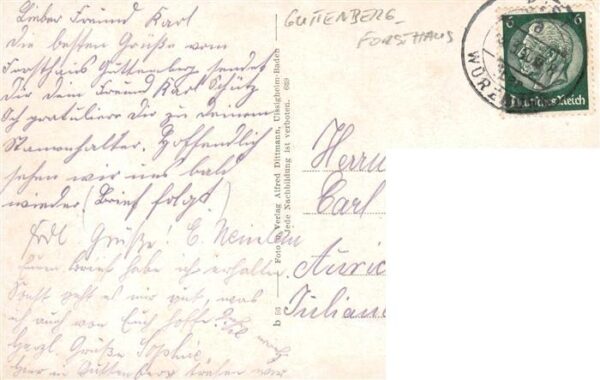 Lieber Freund Karl
die besten Grüße vom
Forsthaus Guttenberg sendet
Dir dem Freund Karl Schütz
Ich gratuliere Dir zu Deinem
Stammhalter. Hoffentlich
sehen wir uns bald
wieder (Brief folgt)
Frdl Grüße! E.
Euern Brief habe ich erhalten
Sonst geht es mir gut, was
ich auch von Euch hoffe.
Herzl. Grüße Sophie
hier in Guttenberg trafen wir
GUTTENBERG-
FORSTHAUS
6 6
Deutsches Reich
WÜRZ
b 60 Foto u. Verlag Alfred Dittmann, Uissigheim-Baden
Jede Nachbildung ist verboten. 689
Herrn
Carl
Auric
Juliane